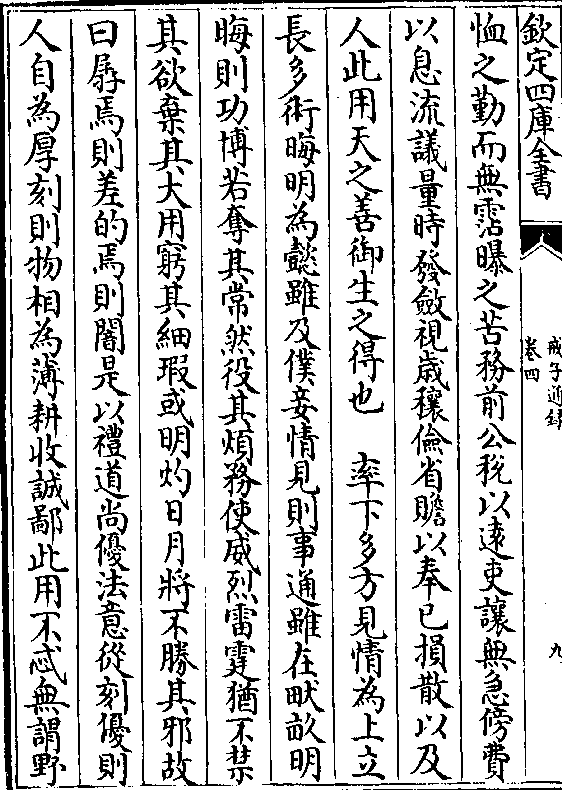 欽定四庫全書
戒子通錄
卷四
九
恤之勤而無霑曝之苦務前公稅以遠吏讓無急傍費
以息流議量時發斂視歳穰儉省贍以奉已損散以及
人此用天之善御生之得也　率下多方見情為上立
長多術晦明為懿雖及僕妾情見則事通雖在畎畝明
晦則功博若奪其常然役其煩務使威烈雷霆猶不禁
其欲棄其大用窮其細瑕或明灼日月將不勝其邪故
曰孱焉則差的焉則闇是以禮道尚優法意從刻優則
人自為厚刻則物相為薄耕收誠鄙此用不忒無謂野